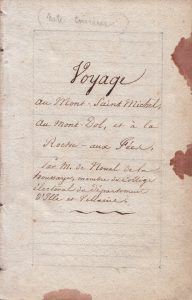 Voyage
au Mont-Saint Michel,
au Mont-Dol, et à la
Roche-aux Fées,
Par Mr. de Nouel de la
houssaye, membre du Collège
électoral du Département
d'Ille et Villaine.